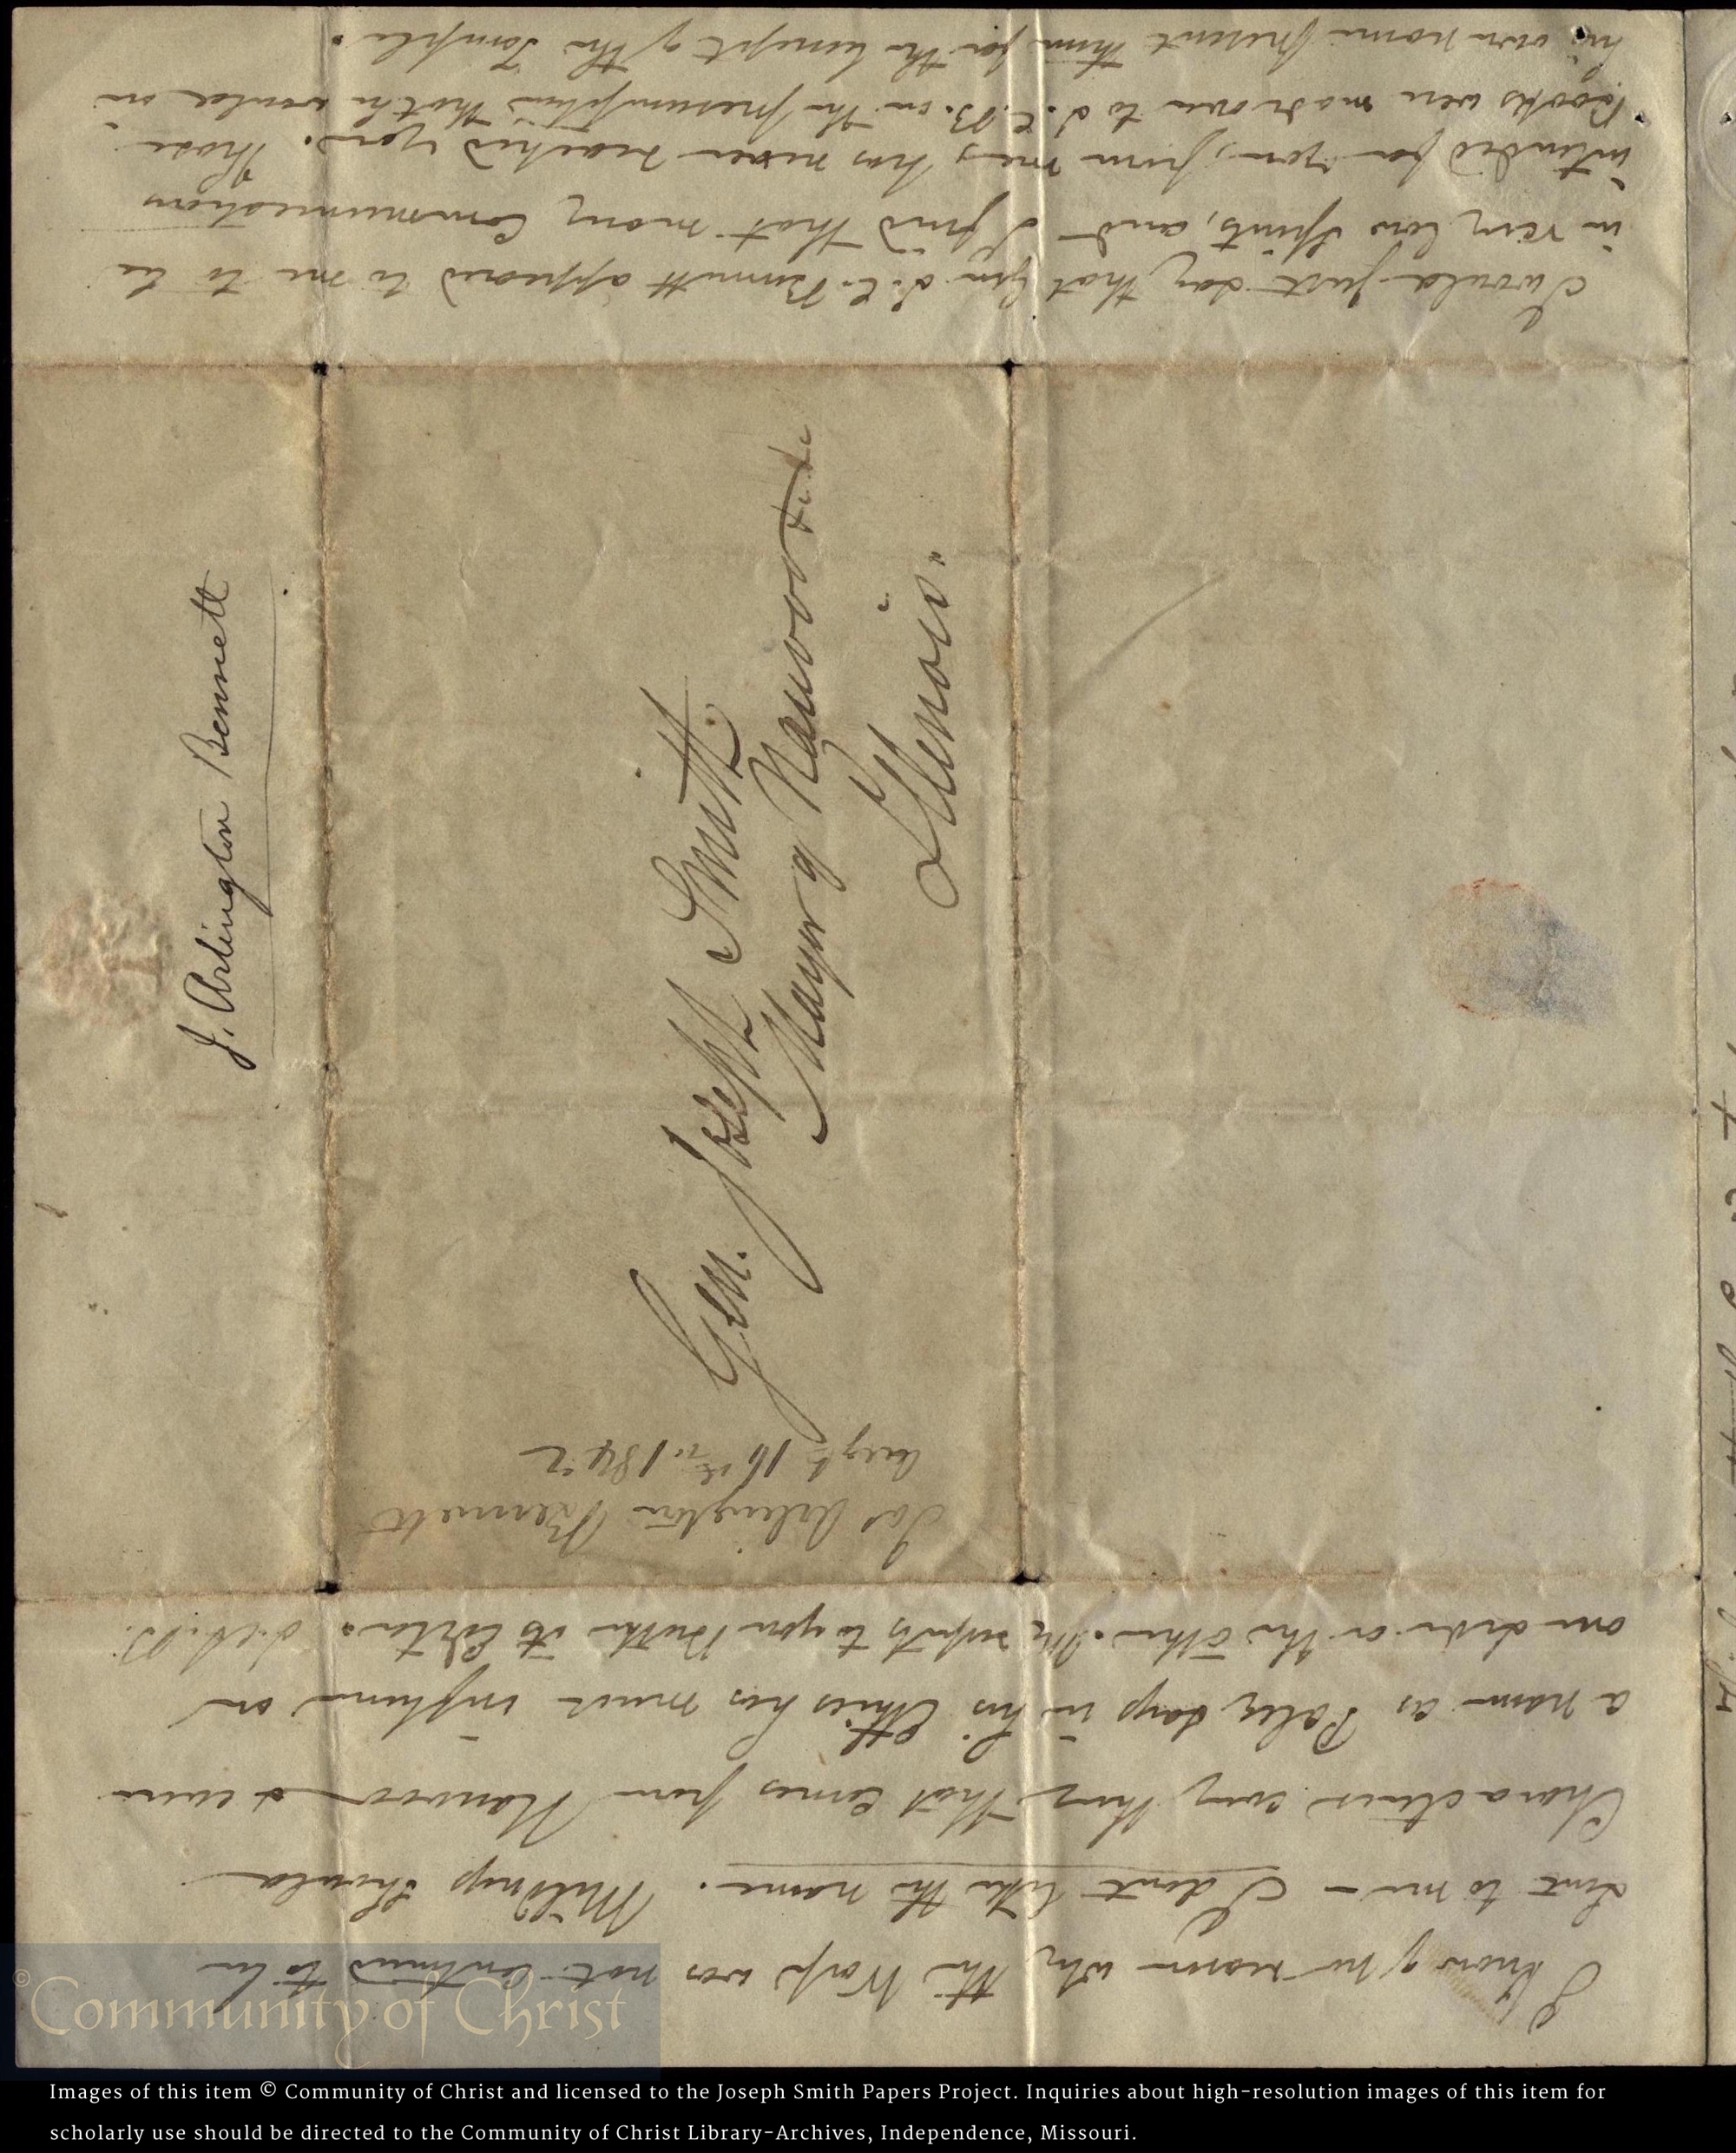 I know of no reason why the Wasp was not continued to be
sent to me — I dont like the name. Mildness should
characterise every thing that comes from Nauvoo & even
a name as Paley says in his Ethics has much influence on
one side or the other. My respects to your Brother its Editor. J. A. B.
Jas Arlington Bennett
Augt 16th 1842
Gen. Joseph Smith
Mayor of Nauvoo
Illenois.
J. Arlington Bennett
I would just say that Gen J. C. Bennett appeared to me to be
in very low Spirits, and I find that many Communications
intended for you, from me, has never reached you. Those
Books were made over to J. C. B. on the presumption that he would in
his own name present them for the benefit of the Temple.
© Community of Christ
Images of this item © Community of Christ and licensed to the Joseph Smith Papers Project. Inquiries about high-resolution images of this item for
scholarly use should be directed to the Community of Christ Library-Archives, Independence, Missouri.